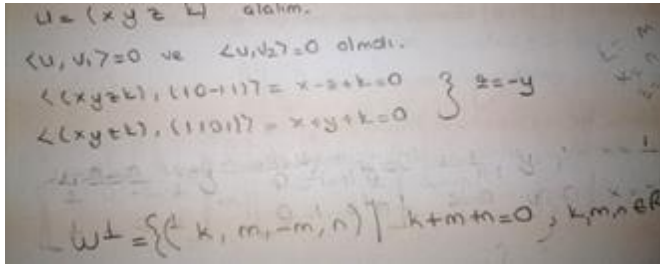 u = (x y z k) alalım.
<u, v₁> = 0 ve <u, v₂> = 0 olmalı.
<(x y z k), (1 0 -1 1)> = x - z + k = 0 } z = -y
<(x y z k), (1 1 0 1)> = x + y + k = 0
W⊥ = {( k, m, -m, n) | k + m + n = 0 , k, m, n ∈ R